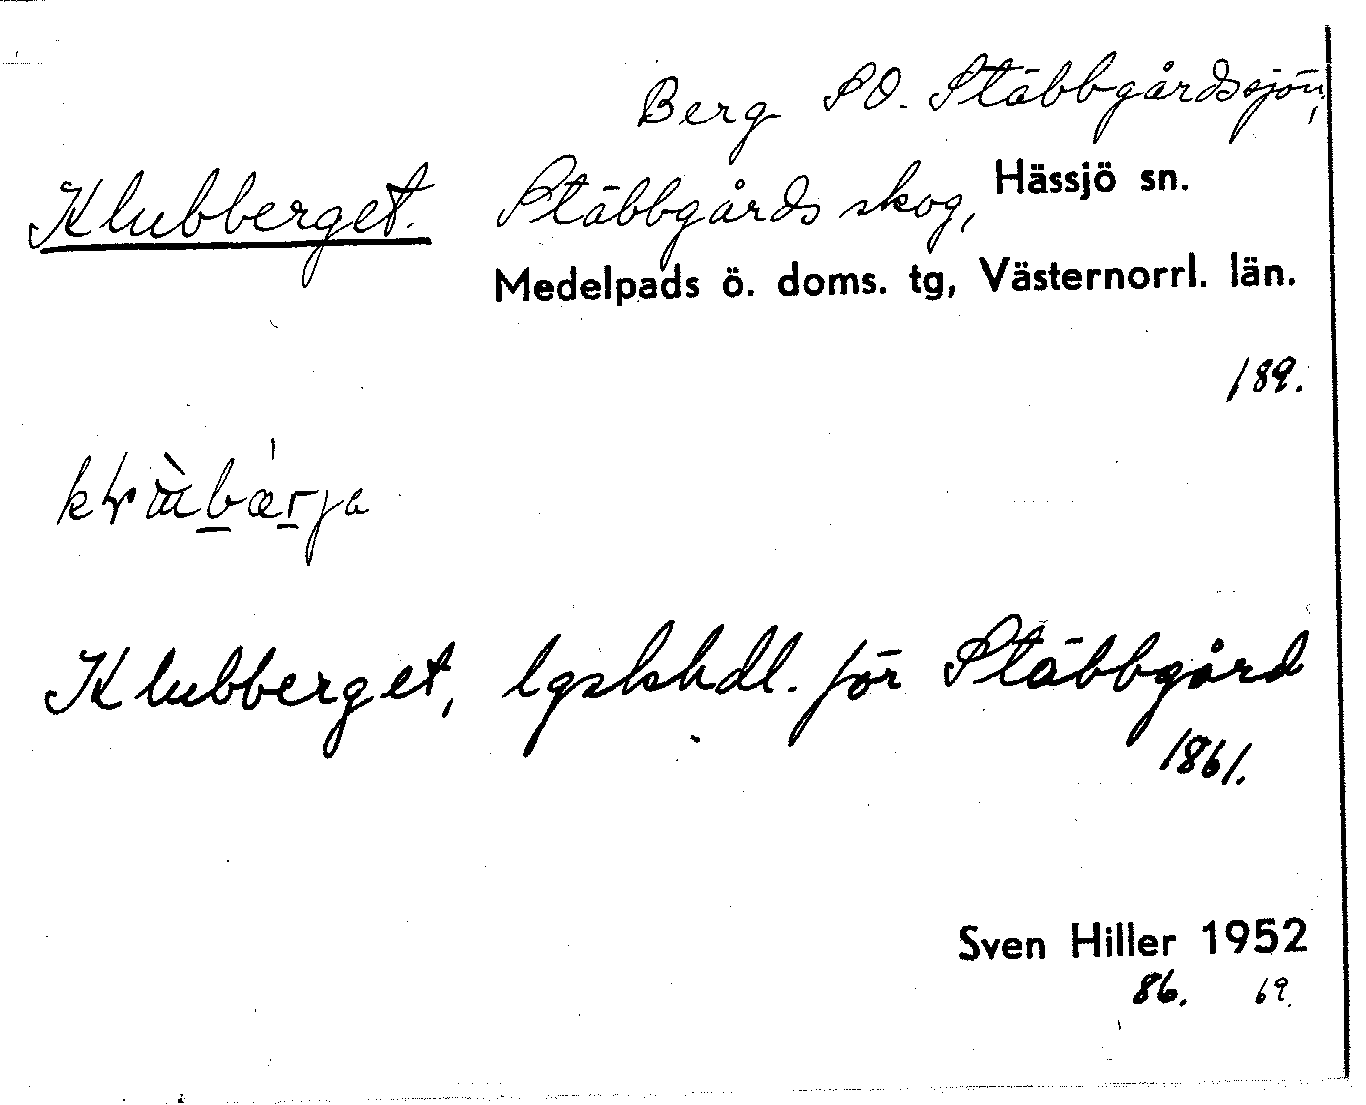 Berg SO. Stäbbgårdssjön,
Klubberget. Stäbbgårds skog, Hässjö sn.
Medelpads ö. doms. tg, Västernorrl. län.
189.
Klubberget, lgskhdl. för Stäbbgård
1861.
Sven Hiller 1952
86. 69.